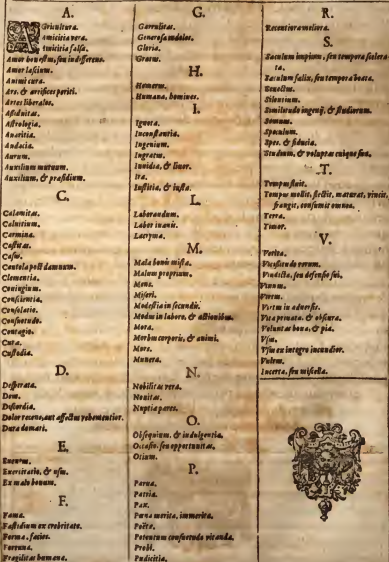 A.
Agricultura.
Amicitia vera.
Amicitia falsa.
Amor honestus, seu indifferens.
Amor lascivus.
Animi cura.
Ars, & artifices periti.
Artes liberales.
Assiduitas.
Astrologia.
Avaritia.
Audacia.
Aurum.
Auxilium mutuum.
Auxilium, & præsidium.
C.
Calamitas.
Calvitium.
Carmina.
Castitas.
Casus.
Cautela post damnum.
Clementia.
Coniugium.
Conscientia.
Consolatio.
Consuetudo.
Contagio.
Cura.
Custodia.
D.
Desperata.
Deus.
Discordia.
Dolor recens, aut affectus vehementior.
Dura domari.
E.
Exercitatio, & usus.
Ex malo bonum.
F.
Fama.
Fastidium ex crebritate.
Forma, facies.
Fortuna.
Fragilitas humana.
G.
Garrulitas.
Generosa indoles.
Gloria.
Graeus.
H.
Homerus.
Humana, homines.
I.
Ignota.
Inconstantia.
Ingenium.
Ingratus.
Invidia, & livor.
Ira.
Iustitia, & iusta.
L.
Laborandum.
Labor inanis.
Lacryma.
M.
Mala bonis mista.
Malum proprium.
Mens.
Miseri.
Modestia in secundis.
Modus in labore, & actionibus.
Mora.
Morbus corporis, & animi.
Mors.
Munera.
N.
Nobilitas vera.
Novitas.
Nuptia pares.
O.
Obsequium, & indulgentia.
Occasio, seu opportunitas.
Otium.
P.
Parva.
Patria.
Pax.
Pœna merita, immerita.
Poëta.
Potentum consuetudo vitanda.
Probi.
Pudicitia.
R.
Recentiora meliora.
S.
Sæculum impium, seu tempora scelera-
ta.
Sæculum felix, seu tempora beata.
Senectus.
Silentium.
Similitudo ingenij, & studiorum.
Somnus.
Speculum.
Spes, & fiducia.
Studium, & voluptas cuique sua.
T.
Tempus fluit.
Tempus mollit, flectit, maturat, vincit,
frangit, consumit omnia.
Terra.
Timor.
V.
Verita.
Vicissitudo rerum.
Vindicta, seu defensio sui.
Vinum.
Virtus in adversis.
Vita privata, & obscura.
Voluntas bona, & pia.
Usus.
Usus ex integro iucundior.
Vulnus.
Incerta, seu miscella.